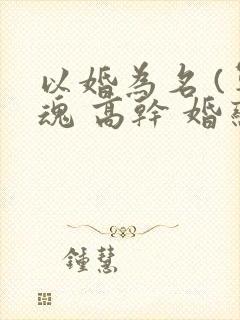 以婚為名(
魂 高幹 婚
鍾慧